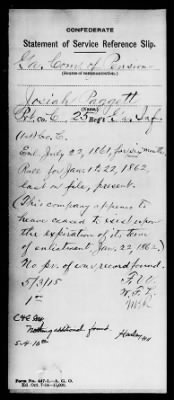 CONFEDERATE
Statement of Service Reference Slip.
Ga Com'r of Pensions
(Source of communication.)
Josiah Paggett
(Name)
Pvt. Co. C, 25 Reg't Ga. Inf.
Enl. July 22, 1861, for six months
Roll for Jan 12, 1862,
last on file, present.
(This company appears to
have ceased to exist upon
the expiration of its term
of enlistment Jan. 22, 1862.)
No pr. of war record found.
5/3/15
1st
Nothing additional found.
5-4-15
Form No. 447-1—A. G. O.